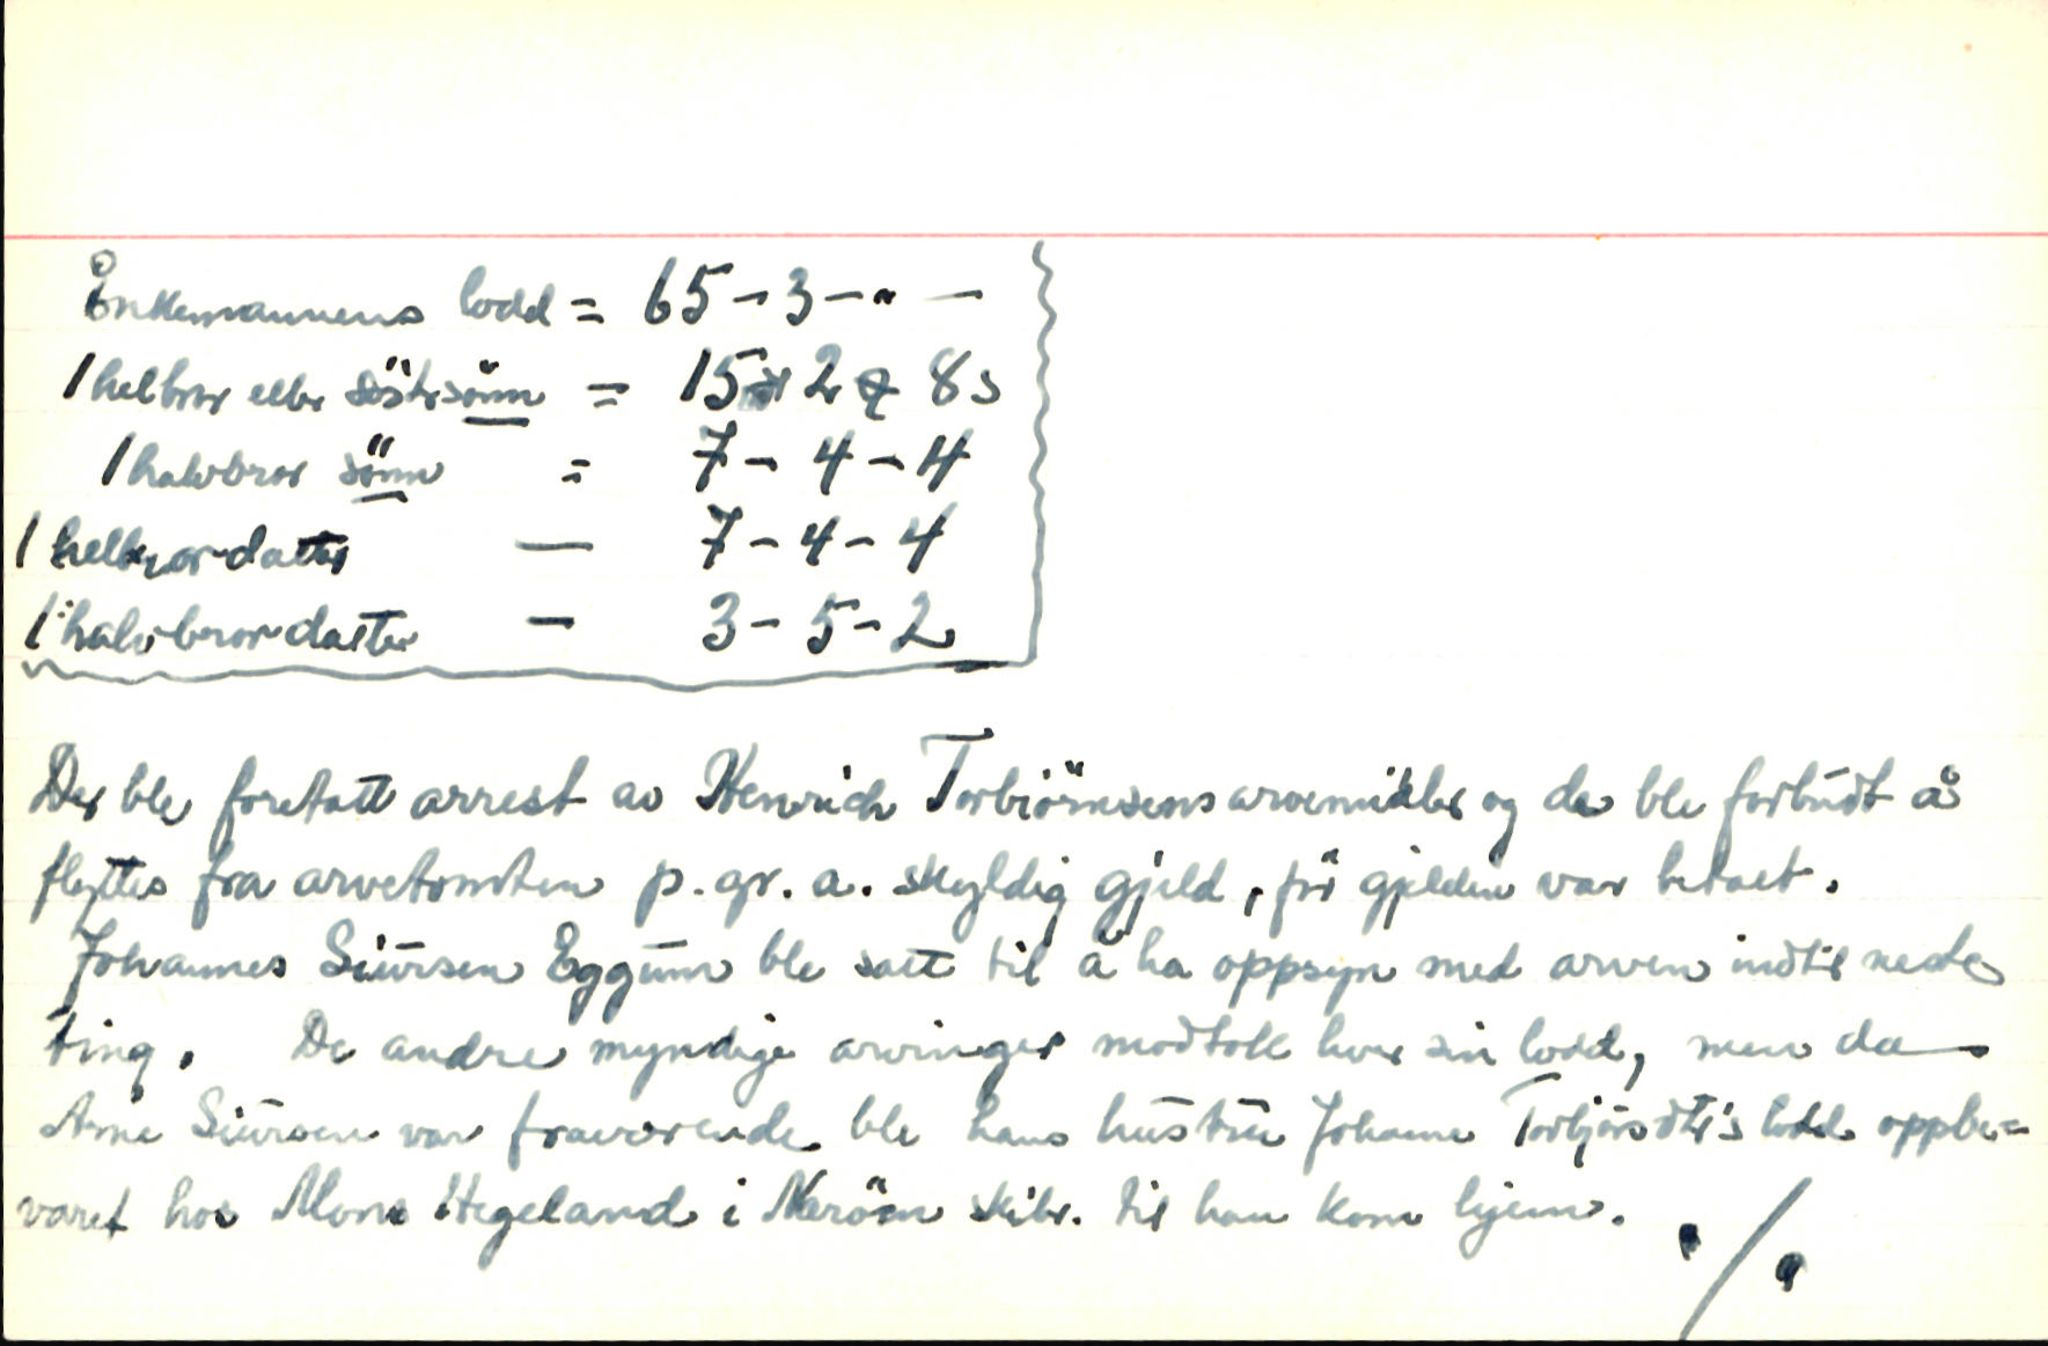 Enkemannens lodd = 65 - 3 - " -
1 helbror eller söstersönn = 15 2 8 s
1 halvbror sönn = 7 - 4 - 4
1 helbrordatter — 7 - 4 - 4
1 halvbrordatter - 3 - 5 - 2
Der ble foretatt arrest av Henrich Torbiörnsens arvemidler og de ble forbudt å
flyttes fra arvetomten p. gr. a. skyldig gjeld, för gjelden var betalt.
Johannes Siursen Eggum ble satt til å ha oppsyn med arven indtil neste
ting. De andre myndige arvinger modtok hver sin lodd, men da
Arne Siursen var fraværende ble hans hustru Johanne lodd oppbe=
varet hos Mons Hegeland i skibr. til han kom hjem. ./.